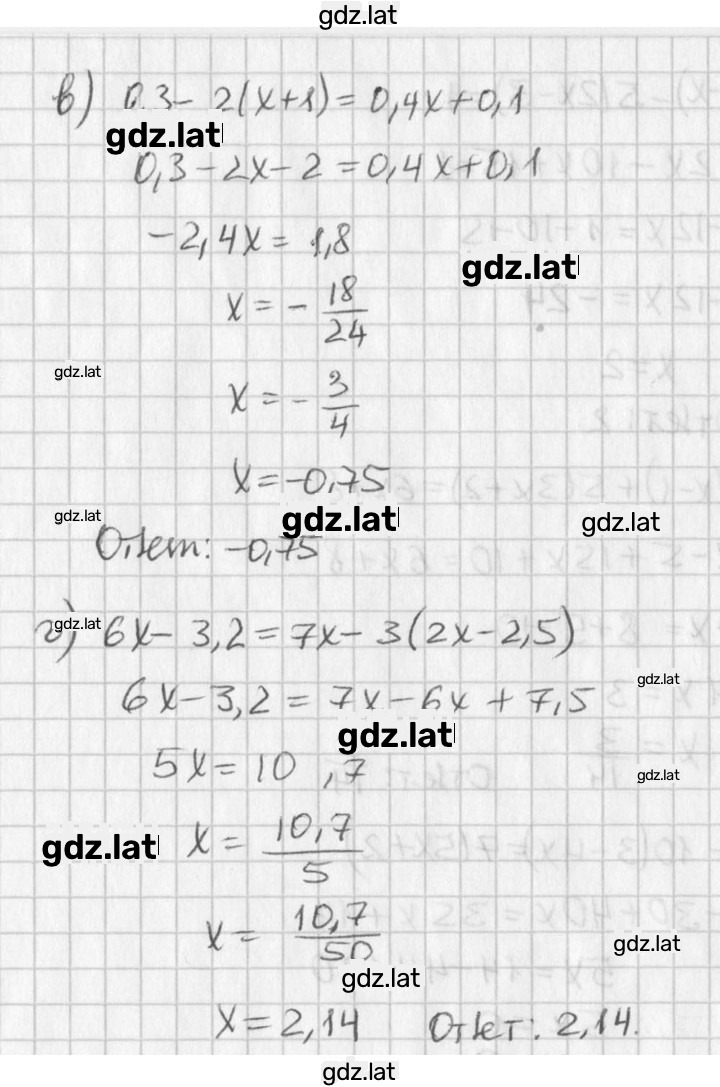 gdz.lat
в) 0,3 - 2(x+1) = 0,4x + 0,1
gdz.lat
0,3 - 2x - 2 = 0,4x + 0,1
-2,4x = 1,8
gdz.lat
x = - 18/24
gdz.lat
x = - 3/4
x = -0,75
gdz.lat
gdz.lat
gdz.lat
Ответ: -0,75
г) 6x - 3,2 = 7x - 3(2x - 2,5)
gdz.lat
gdz.lat
6x - 3,2 = 7x - 6x + 7,5
gdz.lat
5x = 10,7
gdz.lat
x = 10,7/5
gdz.lat
x = 10,7/50
gdz.lat
gdz.lat
x = 2,14 Ответ: 2,14.
gdz.lat